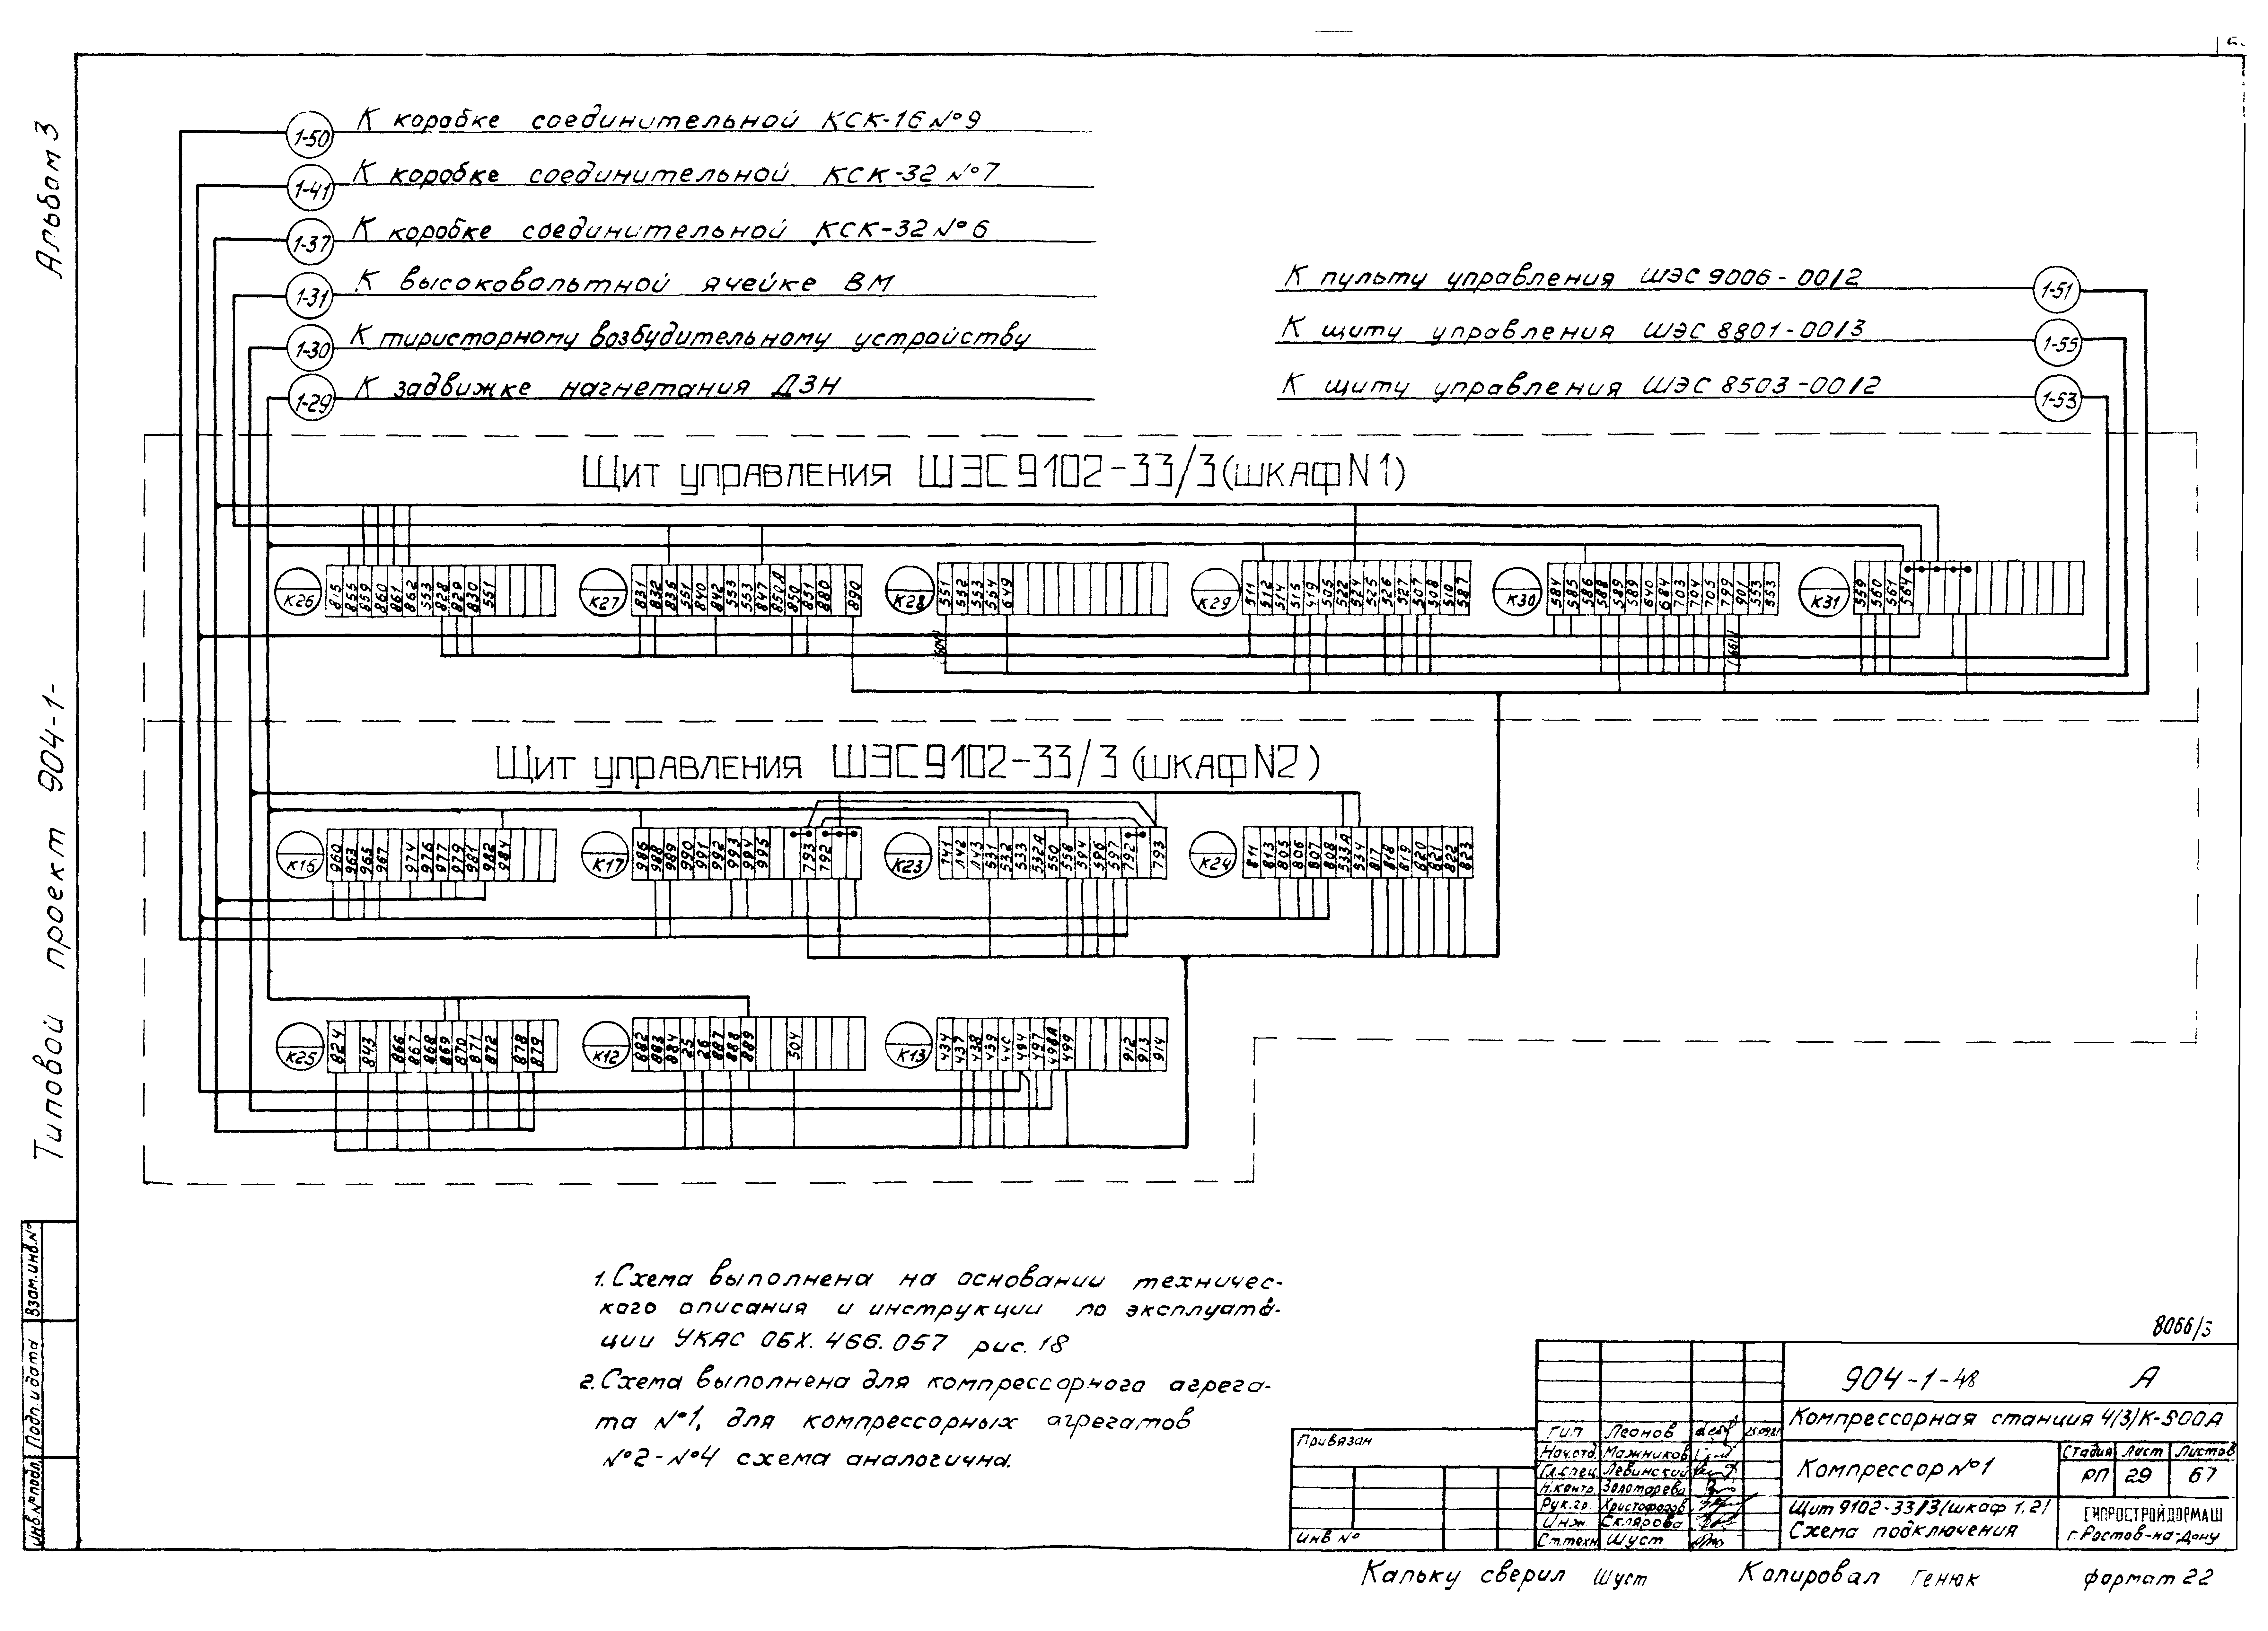 Альбом 3
Типовой проект 904-1-
1-50 К коробке соединительной КСК-16 №9
1-41 К коробке соединительной КСК-32 №7
1-37 К коробке соединительной КСК-32 №6
1-31 К высоковольтной ячейке ВМ
1-30 К тиристорному возбудительному устройству
1-29 К задвижке нагнетания ДЗН
К пульту управления ШЭС 9006-00/2 1-51
К щиту управления ШЭС 8801-00/3 1-55
К щиту управления ШЭС 8503-00/2 1-53
Щит управления ШЭС9102-33/3(шкаф N1)
К26 815 855 859 860 861 862 553 828 829 830 551
К27 831 832 836 551 840 842 553 553 847 850А 850 851 880 890
К28 551 552 553 554 649
К29 511 512 514 515 419 505 522 524 525 526 527 507 508 510 587
К30 584 585 586 588 589 589 640 684 703 704 705 799 901 553 553
К31 559 560 561 564
Щит управления ШЭС9102-33/3 (шкаф N2)
К16 960 963 965 967 974 976 977 979 981 982 984
К17 986 988 989 990 991 992 993 994 995 793 792
К23 741 742 743 531 532 533 532А 550 558 594 596 597 792 793
К24 811 813 805 806 807 808 533А 534 817 818 819 820 821 822 823
К25 824 843 866 867 868 869 870 871 872 878 879
К12 882 883 884 25 26 887 888 889 504
К13 434 437 438 439 440 494 497 498А 499 912 913 914
1. Схема выполнена на основании техничес-
кого описания и инструкции по эксплуата-
ции УКАС ОБХ. 466. 057 рис. 18
2. Схема выполнена для компрессорного агрега-
та №1, для компрессорных агрегатов
№2-№4 схема аналогична.
Взам.инв.№
Подп. и дата
Инв.№подл.
8066/3
904-1-48 А
Компрессорная станция 4(3)К-500А
Компрессор №1
Стадия Лист Листов
РП 29 67
Щит 9102-33/3(шкаф 1.2)
Схема подключения
ГИПРОСТРОЙДОРМАШ
г.Ростов-на-Дону
Привязан
Инв №
ГИП Леонов
Нач.отд. Мажников
Гл.спец. Левинский
Н.контр. Золотарева
Рук.гр. Христофоров
Инж. Склярова
Ст.техн. Шуст
Кальку сверил Шуст Копировал Генюк формат 22